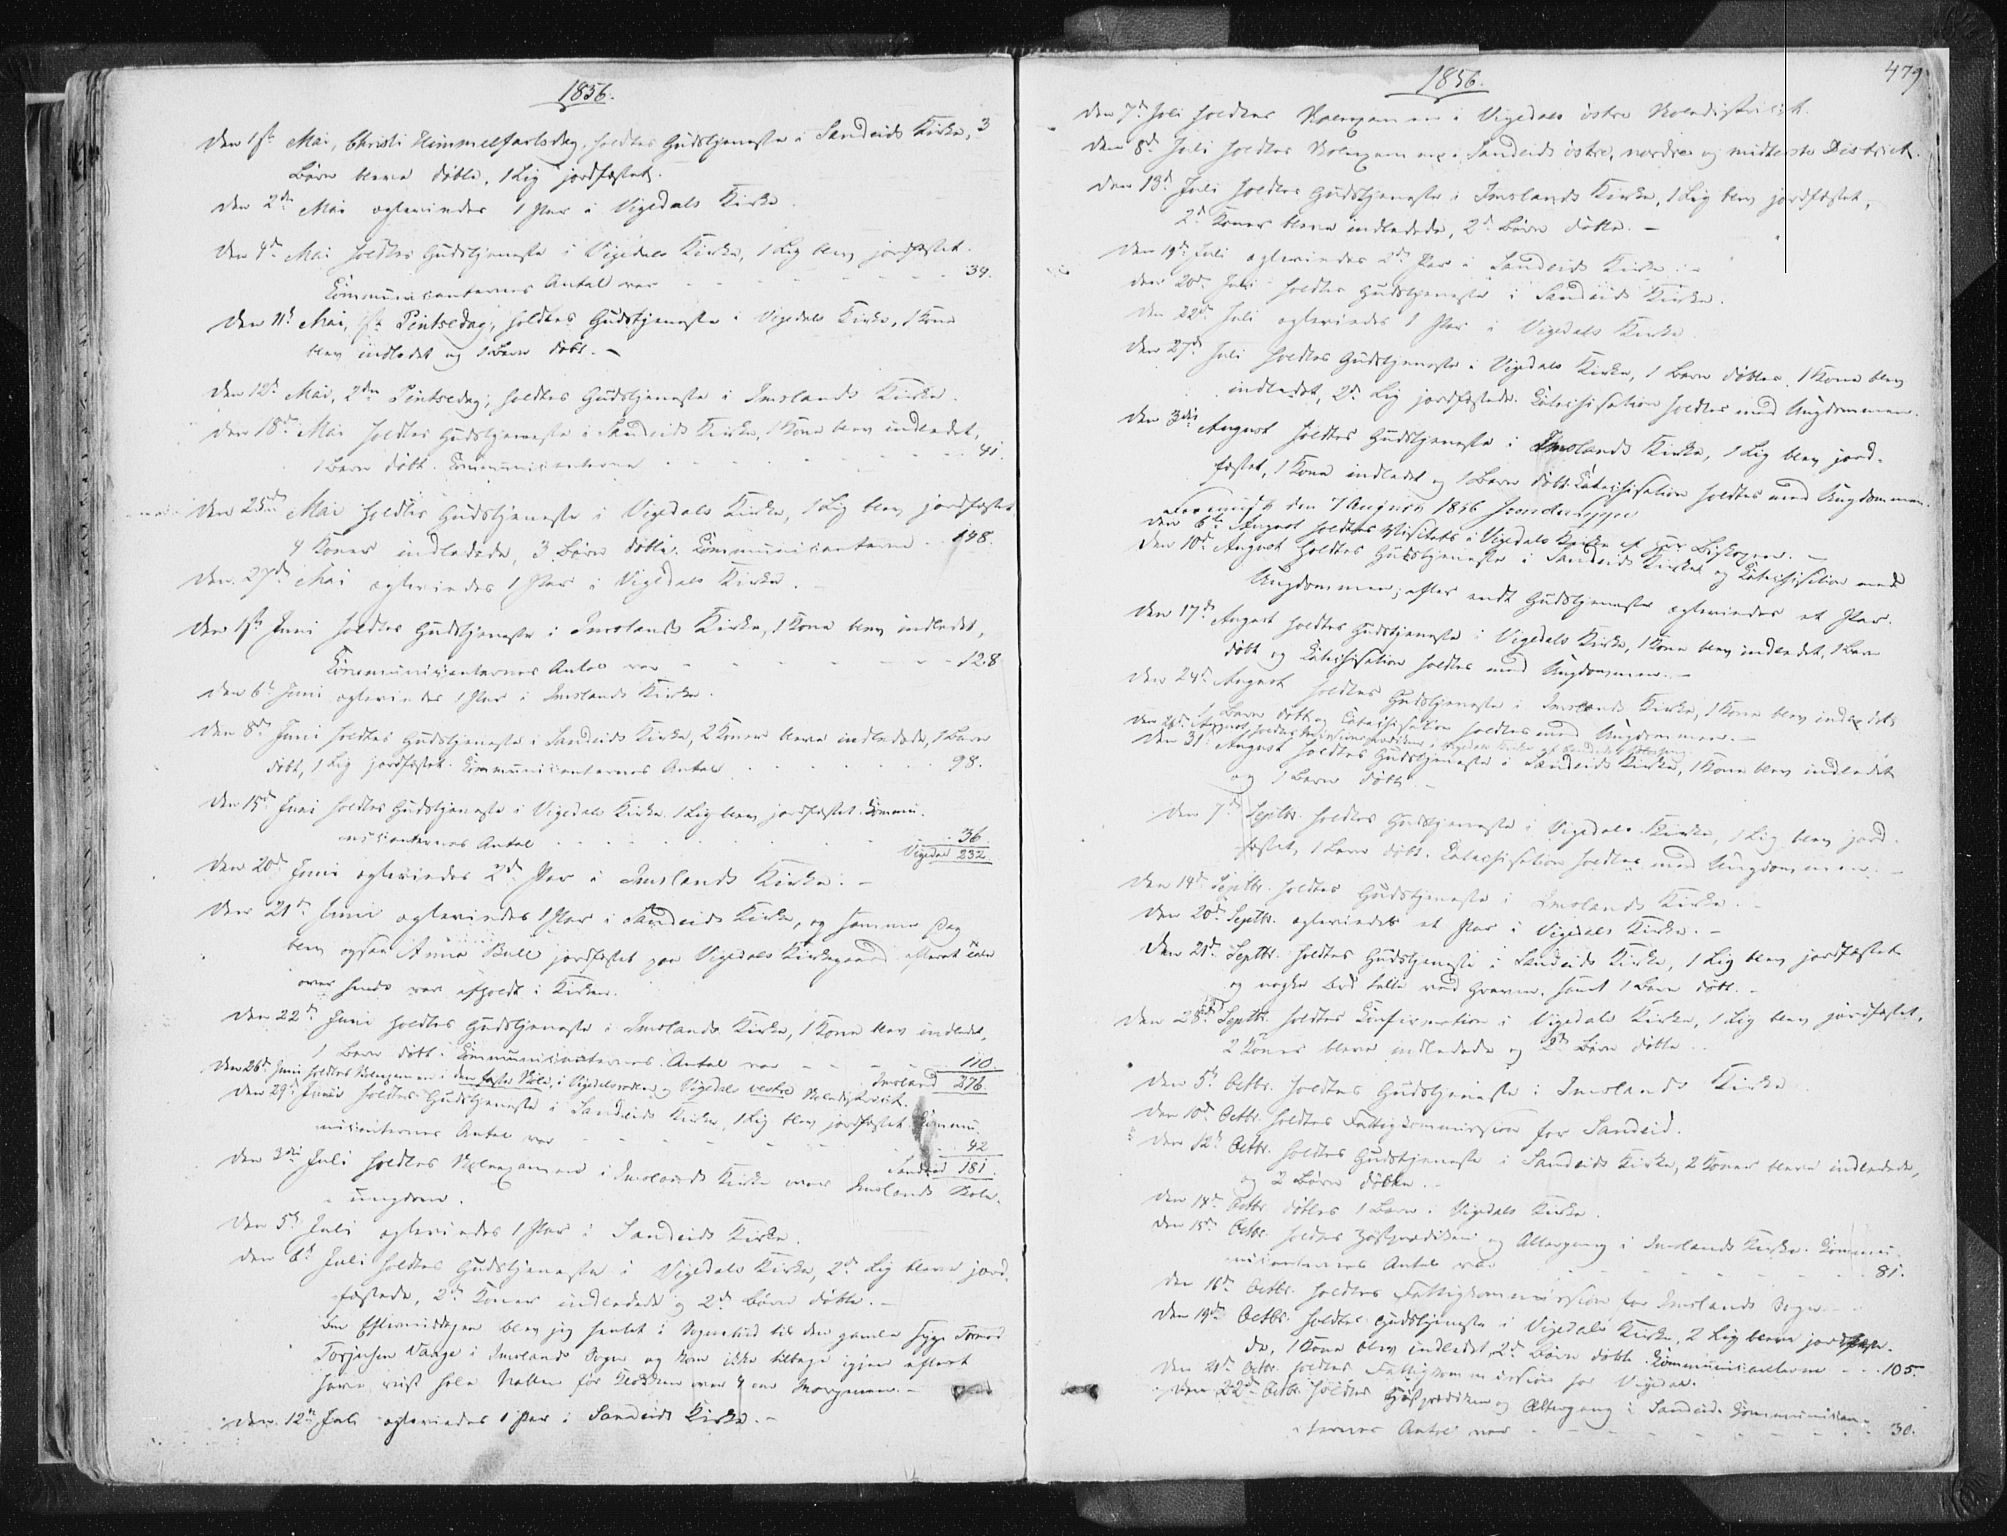 1856.
Den 1ste Mai, Christi Himmelfartsdag, holdtes Gudstjeneste i Sandeids Kirke, 3
Børn bleve døbte, 1 Lig jordfæstet.
Den 2den Mai egteviedes 1 Par i Vigedals Kirke.
Den 4de Mai holdtes Gudstjeneste i Vigedals Kirke, 1 Lig blev jordfæstet.
Communicanternes Antal var - - - - 34.
Den 11te Mai, 1ste Pintsedag, holdtes Gudstjeneste i Vigedals Kirke, 1 Kone
blev indledet og 1 Barn døbt. -
Den 12te Mai, 2den Pintsedag, holdtes Gudstjeneste i Imslands Kirke.
Den 18de Mai holdtes Gudstjeneste i Sandeids Kirke, 1 Kone blev indledet,
1 Barn døbt. Communicanterne - - - - 41.
Den 25de Mai holdtes Gudstjeneste i Vigedals Kirke, 1 Lig blev jordfæstet
4 Koner indledede, 3 Børn døbte. Communicanterne - 148.
Den 27de Mai egteviedes 1 Par i Vigedals Kirke. -
Den 1ste Juni holdtes Gudstjeneste i Imslands Kirke, 1 Kone blev indledet,
Communicanternes Antal var - - - - 128
Den 6te Juni egteviedes 1 Par i Imslands Kirke.
Den 8de Juni holdtes Gudstjeneste i Sandeids Kirke, 2 Koner bleve indledede, 1 Barn
døbt, 1 Lig jordfæstet. Communicanternes Antal - - - - 98.
Den 15de Juni holdtes Gudstjeneste i Vigedals Kirke. 1 Lig blev jordfæstet. Commu-
nicanternes Antal - - - - 36
Vigedal 232
Den 20de Juni egteviedes 2de Par i Imslands Kirke. -
Den 21de Juni egteviedes 1 Par i Sandeids Kirke, og samme Dag
blev ogsaa Anna Bull jordfæstet paa Vigedals Kirkegaard, efterat Tale
over hende var afholdt i Kirken.
Den 22de Juni holdtes Gudstjeneste i Imslands Kirke, 1 Kone blev indledet,
1 Barn døbt. Communicanternes Antal var - - - - 110.
Imsland 276.
Den 26de Juni holdtes Skoleexamen i den faste Skole, i Vigedalsøren og Vigedals vestre Skoledistrict.
Den 29de Juni holdtes Gudstjeneste i Sandeids Kirke, 1 Lig blev jordfæstet. Commu-
nicanternes Antal var - - - - 42
Sandeid 181.
Den 3die Juli holdtes Skoleexamen i Imslands Kirke over Imslands Skole-
ungdom.
Den 5te Juli egteviedes 1 Par i Sandeids Kirke.
Den 6te Juli holdtes Gudstjeneste i Vigedals Kirke, 2de Lig bleve jord-
fæstede, 2de Koner indledede og 2de Børn døbte. -
Om Eftermiddagen blev jeg hentet i Sognebud til den gamle syge Tormod
Torjusen Vaage i Imslands Sogn og kom ikke tilbage igjen efterat
have reist hele Natten før Klokken over 4 om Morgenen. -
Den 12te Juli egteviedes 1 Par i Sandeids Kirke. -
1856. 479
Den 7de Juli holdtes Skoleexamen i Vigedals østre Skoledistrict.
Den 8de Juli holdtes Skoleexamen i Sandeids østre, nordre og midterste District.
Den 13de Juli holdtes Gudstjeneste i Imslands Kirke, 1 Lig blev jordfæstet,
2de Koner bleve indledede, 2de Børn døbte. -
Den 19de Juli egteviedes 2de Par i Sandeids Kirke. -
Den 20de Juli holdtes Gudstjeneste i Sandeids Kirke.
Den 22de Juli egteviedes 1 Par i Vigedals Kirke.
Den 27de Juli holdtes Gudstjeneste i Vigedals Kirke, 1 Barn døbtes, 1 Kone blev
indledet, 2de Lig jordfæstede. Catechisation holdtes med Ungdommen.
Den 3die August holdtes Gudstjeneste i Imslands Kirke, 1 Lig blev jord-
fæstet, 1 Kone indledet og 1 Barn døbt. Catechisation holdtes med Ungdommen.
den 7 August 1856
Den 6te August holdtes Visitats i Vigedals Kirke af Hr Biskopen. -
Den 10de August holdtes Gudstjeneste i Sandeids Kirke og Catechisation med
Ungdommen; efter endt Gudstjeneste egteviedes et Par.
Den 17de August holdtes Gudstjeneste i Vigedals Kirke, 1 Kone blev indledet, 1 Barn
døbt og Catechisation holdtes med Ungdommen. -
Den 24de August holdtes Gudstjeneste i Imslands Kirke, 1 Kone blev indledet
1 Barn døbt og Catechisation holdtes med Ungdommen. -
Den 31 August holdtes Gudstjeneste i Sandeids Kirke, 1 Kone blev indledet
og 1 Barn døbt. -
Den 7de Septbr. holdtes Gudstjeneste i Vigedals Kirke, 1 Lig blev jord-
fæstet, 1 Barn døbt. Catechisation holdtes med Ungdommen. -
Den 14de Septbr. holdtes Gudstjeneste i Imslands Kirke. -
Den 20de Septbr. egteviedes et Par i Vigedals Kirke. -
Den 21de Septbr. holdtes Gudstjeneste i Sandeids Kirke, 1 Lig blev jordfæstet
og nogle Ord talte ved Graven, samt 1 Barn døbt. -
Den 28de Septbr. holdtes Confirmation i Vigedals Kirke, 1 Lig blev jordfæstet,
2 Koner bleve indledede og 2de Børn døbte.
Den 5te Octbr. holdtes Gudstjeneste i Imslands Kirke.
Den 10de Octbr. holdtes Fattigkommission for Sandeid.
Den 12te Octbr. holdtes Gudstjeneste i Sandeids Kirke, 2 Koner bleve indledede,
og 2 Børn døbte. -
Den 14de Octbr. døbtes 1 Barn i Vigedals Kirke.
Den 15de Octbr. holdtes Høstprædiken og Altergang i Imslands Kirke. Commu-
nicanternes Antal var - - - - 81.
Den 16de Octbr. holdtes Fattigkommission for Imslands Sogn. -
Den 19de Octbr. holdtes Gudstjeneste i Vigedals Kirke, 2 Lig bleve jordfæste-
de, 1 Kone blev indledet, 2de Børn døbte. Communicanterne - - 105.
Den 21de Octbr. holdtes Fattigkommission for Vigedal.
Den 22de Octbr. holdtes Høstprædiken og Altergang i Sandeid. Communican-
ternes Antal var - - - - 30.